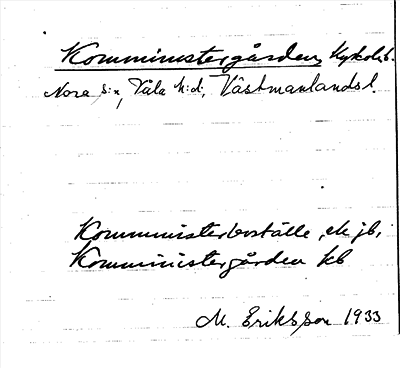 Komministergården, Kyrkob.
Nora s:n, Våla h:d, Västmanlands l.
Komministerboställe, ek jb,
Komministergården kb
M. Eriksson 1933